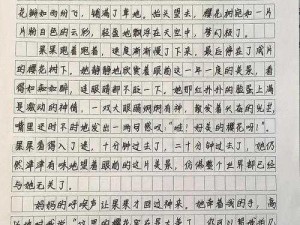 花瓣如雨纷飞，铺满了草地。抬头望去，樱花树宛如一片
片粉白色的云彩，轻盈地飘浮在天空中，梦幻极了。
果果跑着跑着，速度渐渐慢了下来，最后停在了成片
的樱花树下，她静静地欣赏着眼前这一年一度的美景，看
得如痴如醉，驻足在树下。她那红扑扑的脸蛋上满
是激动的神情，一双大眼睛炯炯有神，散发着兴奋的光芒，
嘴里还时不时地发出一两句感叹“哇！好美的樱花啊！”
果果看得入了迷，十分钟过去了，二十分钟过去了，她仍
然津津有味地望着眼前的这片美景，仿佛整个世界都已经
与她无关了。
妈妈的呼唤声让果果才回过神来。她牵着我的手，高